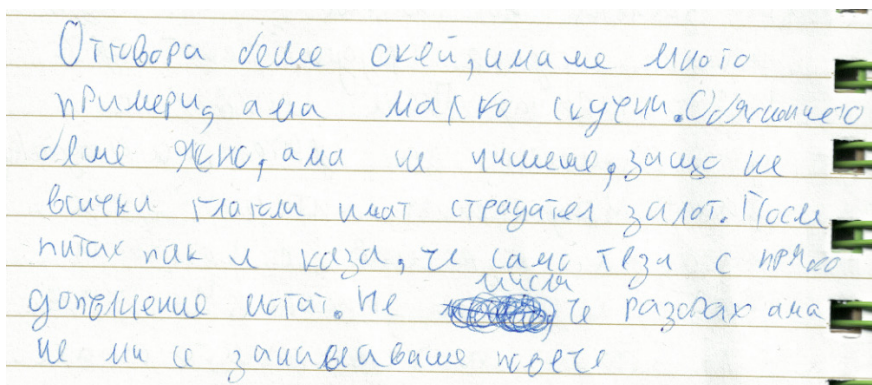 Отговора беше окей, имаме много
примери, ама малко скучни. Обяснението
беше ясно, ама не пишеше, защо не
всички глаголи имат страдател залог. После
питах пак и каза, че само теза с пряко
допълнение могат. Не мисля, че разбрах ама
не ми се занимаваше повече